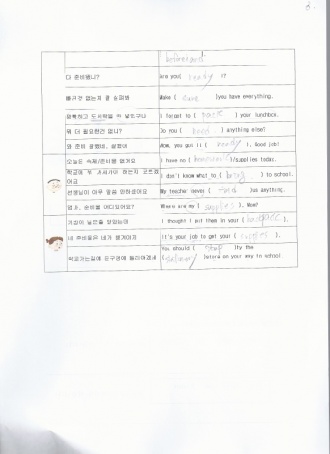 다 준비됐니? Are you( ready )?
빠진것 없는지 잘 살펴봐 Make ( sure )you have everything.
I forgot to ( pack ) your lunchbox.
뭐 더 필요한건 없니? Do you ( need ) anything else?
와 준비 잘했네, Wow, you got it ( ready ). Good job!
오늘은 숙제/준비물 없어요 I have no ( homework )/supplies today.
학교에 뭐 가져가야 하는지
I don't know what to ( bring ) to school.
선생님이 아무 말씀 안하셨어요 My teacher never ( said )us anything.
엄마, 준비물 어디있어요? Where are my ( supplies ), Mom?
I thought I put them in your ( backpack ).
네 준비물은 네가 챙겨야지 It's your job to get your ( supplies ).
You should ( stop )by the
학교가는길에 문구점에 ( stationery )store on your way to school.